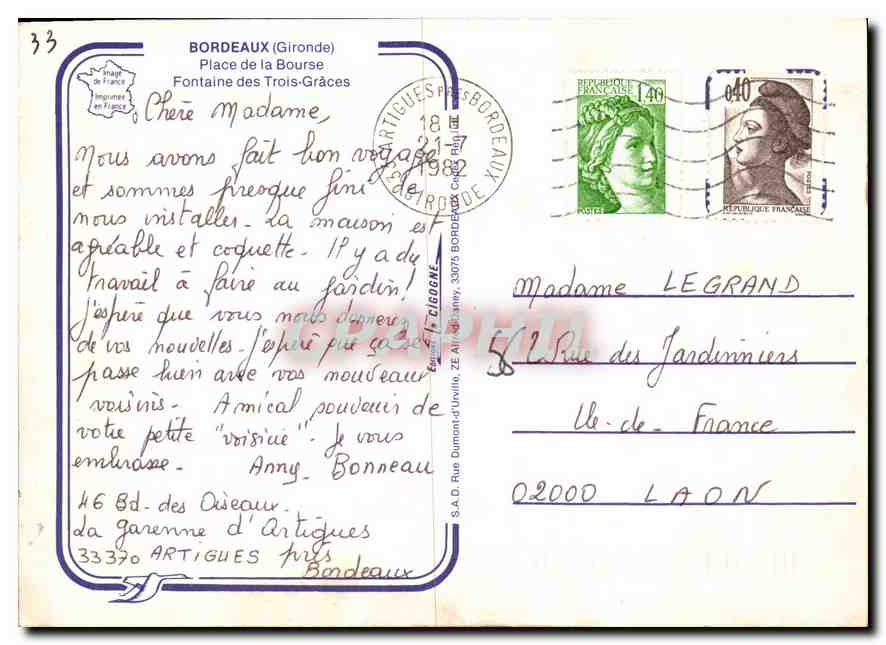 33
BORDEAUX (Gironde)
Place de la Bourse
Fontaine des Trois-Grâces
Image
de France
Imprimée
en France
Chère Madame,
Nous avons fait bon voyage
et sommes presque fini de
nous installer. La maison est
agréable et coquette. Il y a du
travail à faire au jardin!
J'espère que vous nous donnerez
de vos nouvelles. J'espère que ça se
passe bien avec vos nouveaux
voisins. Amical souvenir de
votre petite "voisine". Je vous
embrasse. Anny Bonneau
46 Bd. des Oiseaux.
La garenne d'Artigues
33370 ARTIGUES près
Bordeaux
33 ARTIGUES PRES BORDEAUX
18 H
21-7
1982
GIRONDE
Editions La CIGOGNE
S.A.D. Rue Dumont-d'Urville, ZE Alfred-Daney, 33075 BORDEAUX Cedex
REPUBLIQUE
FRANÇAISE
1,40
POSTES
0,40
POSTES
REPUBLIQUE FRANÇAISE
Madame LEGRAND
2 Rue des Jardinniers
Ile-de-France
02000 LAON
CPAPHIL